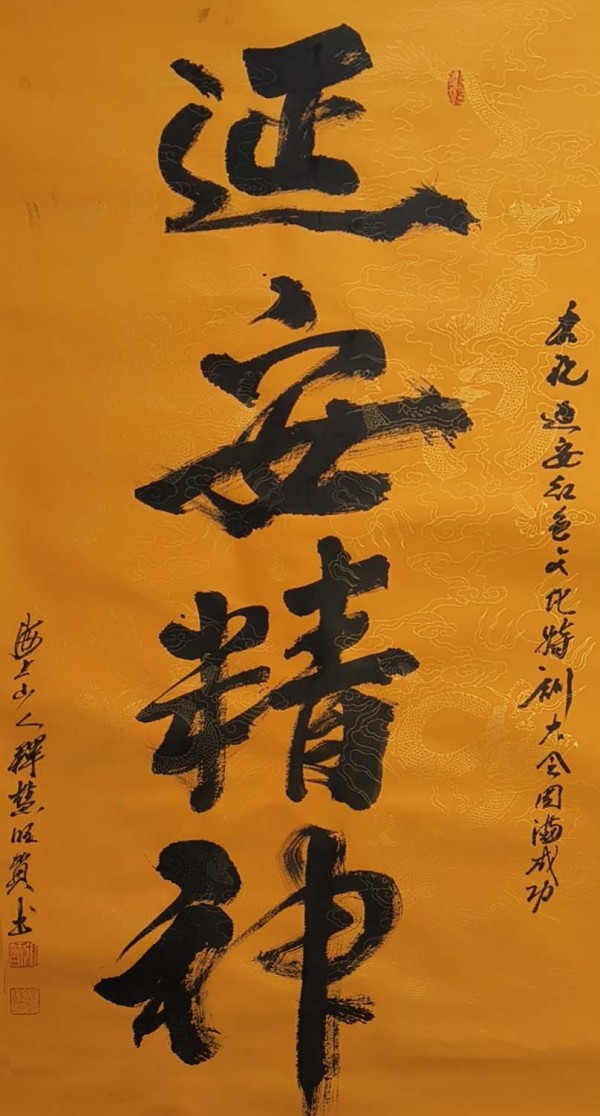 延安精神
庆祝延安红色文化特训大会圆满成功
海上山人释慧旺贺书